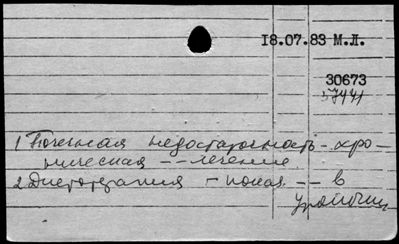 18.07.83 М.Л.
30673
57441
1 Почечная недостаточность - хро-
ническая -- лечение
2 Диетотерапия - показ. -- в
урологии